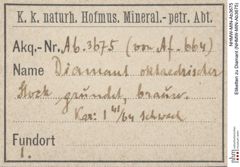 K. k. naturh. Hofmus. Mineral.-petr. Abt.
Akq.-Nr. Ab. 3675 (von Af. 664)
Name Diamant oktaedrischer
Stock grundet, braun.
Kar: 1 41/64 schwach
Fundort
1.
NHMW-MIN-Ab3675
Etiketten zu Diamant (NHMW-MIN-Ab3675)